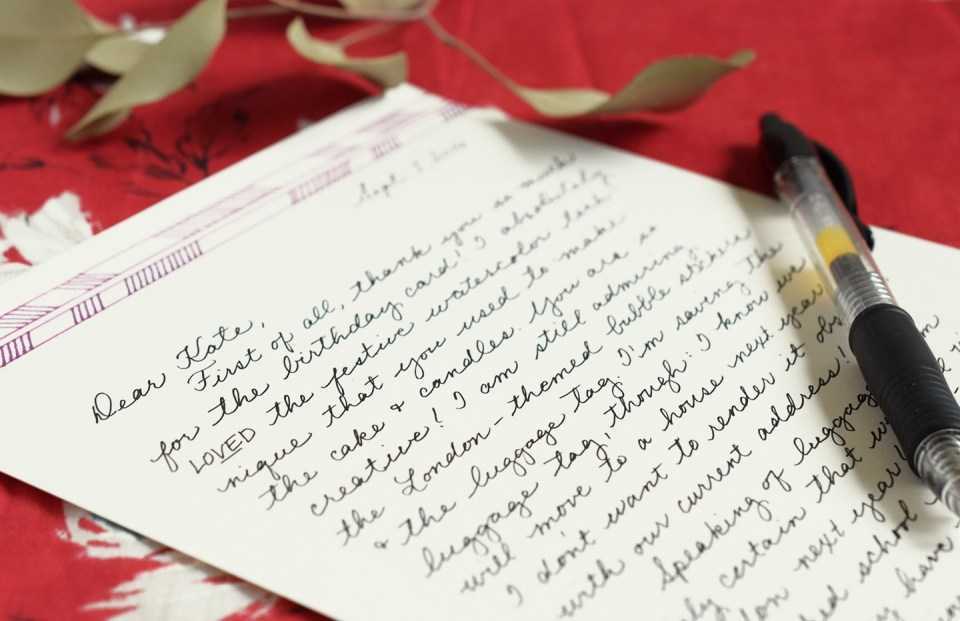 Sept.
Dear Kate,
First of all, thank you so much
for the birthday card! I absolutely
LOVED the festive watercolor tech
nique that you used to make
the cake & candles. You are so
creative! I am still admiring
the London-themed bubble stickers
& the luggage tag. I'm saving the
luggage tag, though: I know we
will move to a house next year
I don't want to render it obs
with our current address!
Speaking of luggage
certain that w
next year!
school
have